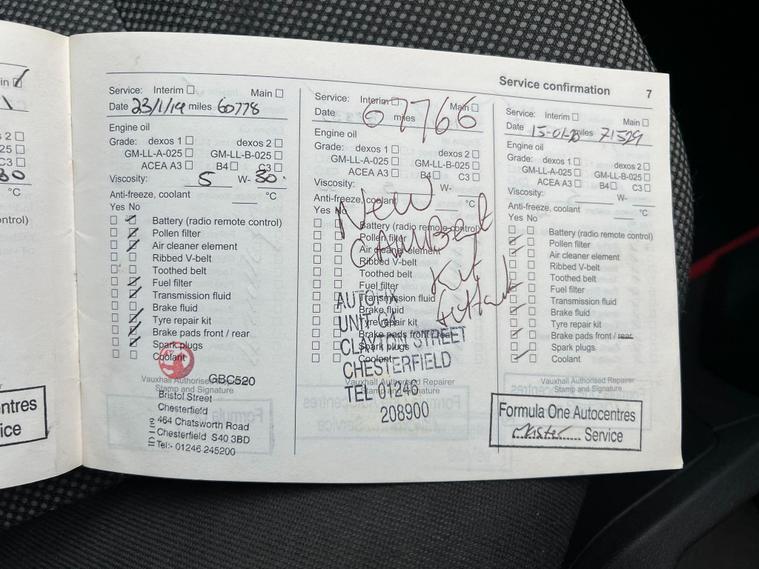 Service confirmation 7
in
2
025
C3
30
°C
ontrol)
entres
ice
Service: Interim Main
Date 23/1/19 miles 60778
Engine oil
Grade: dexos 1 dexos 2
GM-LL-A-025 GM-LL-B-025
ACEA A3 B4 C3
Viscosity: 5 W- 30
Anti-freeze, coolant °C
Yes No
Battery (radio remote control)
Pollen filter
Air cleaner element
Ribbed V-belt
Toothed belt
Fuel filter
Transmission fluid
Brake fluid
Tyre repair kit
Brake pads front / rear
Spark plugs
Coolant
GBC520
Vauxhall Authorised Repairer
Stamp and Signature
Bristol Street
Chesterfield
464 Chatsworth Road
Chesterfield S40 3BD
Tel:- 01246 245200
Service: Interim Main
Date miles
67766
Engine oil
Grade: dexos 1 dexos 2
GM-LL-A-025 GM-LL-B-025
ACEA A3 B4 C3
Viscosity: W-
Anti-freeze, coolant °C
Yes No
Battery (radio remote control)
Pollen filter
Air cleaner element
Ribbed V-belt
Toothed belt
Fuel filter
Transmission fluid
Brake fluid
Tyre repair kit
Brake pads front / rear
Spark plugs
Coolant
New
CAMBELT
Kit
fitted
AUTOFIX
UNIT G4
CLAYTON STREET
CHESTERFIELD
TEL 01246
208900
Vauxhall Authorised Repairer
Stamp and Signature
Service: Interim Main
Date 15-01-20 miles 71529
Engine oil
Grade: dexos 1 dexos 2
GM-LL-A-025 GM-LL-B-025
ACEA A3 B4 C3
Viscosity: W-
Anti-freeze, coolant °C
Yes No
Battery (radio remote control)
Pollen filter
Air cleaner element
Ribbed V-belt
Toothed belt
Fuel filter
Transmission fluid
Brake fluid
Tyre repair kit
Brake pads front / rear
Spark plugs
Coolant
Vauxhall Authorised Repairer
Stamp and Signature
Formula One Autocentres
Master Service